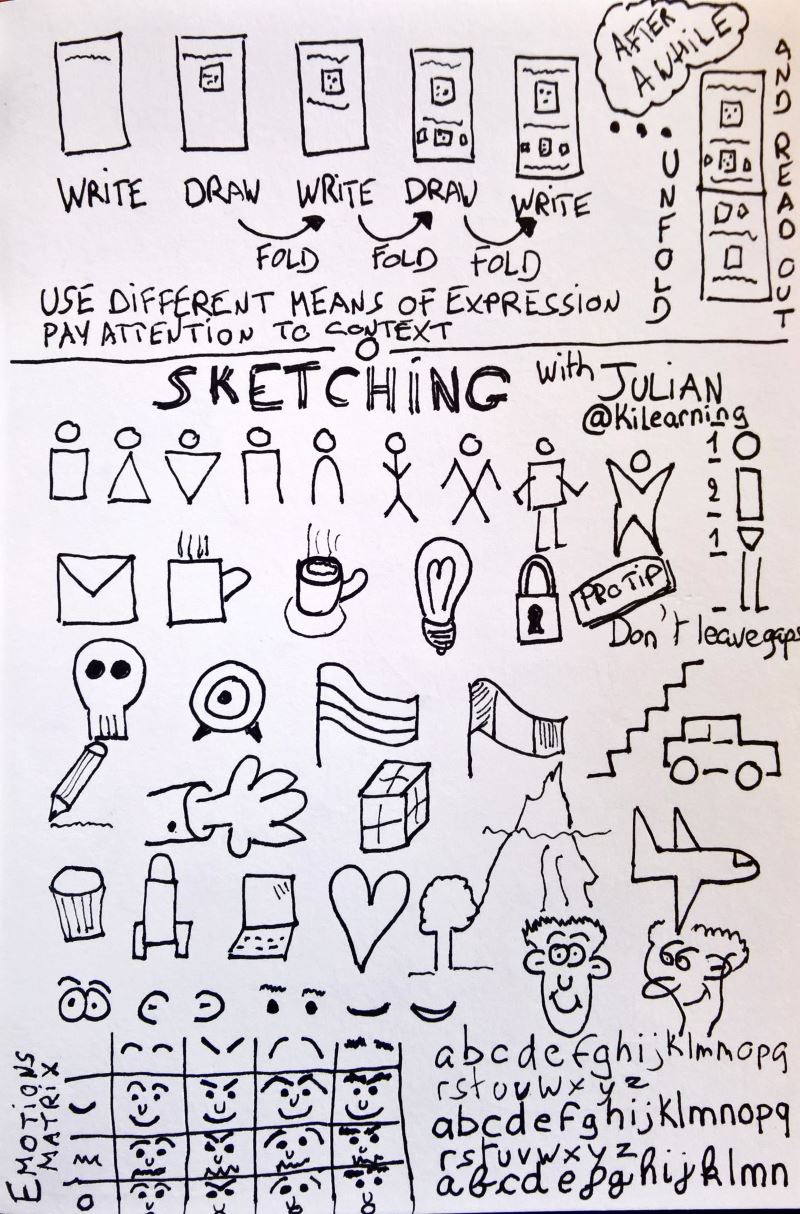 AFTER
A WHILE
WRITE DRAW WRITE DRAW WRITE
FOLD FOLD FOLD
UNFOLD
AND READ OUT
USE DIFFERENT MEANS OF EXPRESSION
PAY ATTENTION TO CONTEXT
SKETCHING with JULIAN
@KiLearning
1
2
1
PRO TIP
Don't leave gaps
EMOTIONS
MATRIX
abcdefghijklmnopq
rstuvwxyz
abcdefghijklmnopq
rstuvwxyz
abcdefghijklmn